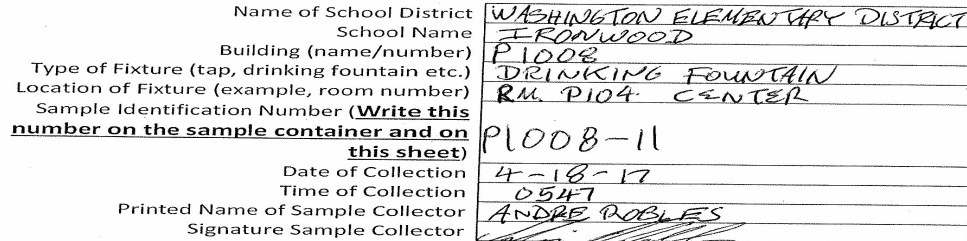 Name of School District WASHINGTON ELEMENTARY DISTRICT
School Name IRONWOOD
Building (name/number) P1008
Type of Fixture (tap, drinking fountain etc.) DRINKING FOUNTAIN
Location of Fixture (example, room number) RM. P104 CENTER
Sample Identification Number (Write this
number on the sample container and on P1008-11
this sheet)
Date of Collection 4-18-17
Time of Collection 0547
Printed Name of Sample Collector ANDRE ROBLES
Signature Sample Collector